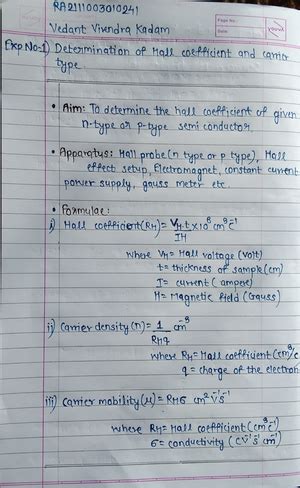 RA2111003010241
Page No.
Date
Vedant Virendra Kadam
Exp No-1) Determination of Hall coefficient and carrier
type.
• Aim: To determine the hall coefficient of given
n-type or p-type semi conductor.
• Apparatus: Hall probe (n type or p type), Hall
effect setup, Electromagnet, constant current
power supply, gauss meter etc.
• Formulae:
i) Hall coefficient (RH) = VH.t x 10⁸ cm³ c⁻¹
IH
where VH = Hall voltage (volt)
t = thickness of sample (cm)
I = current (ampere)
H = Magnetic field (Gauss)
ii) Carrier density (n) = 1 cm⁻³
RHq
where RH = Hall coefficient (cm³/c
q = charge of the electron
iii) Carrier mobility (μ) = RHσ cm² v⁻¹ s⁻¹
where RH = Hall coefficient (cm³ c⁻¹)
σ = conductivity (C v⁻¹ s⁻¹ cm⁻¹)